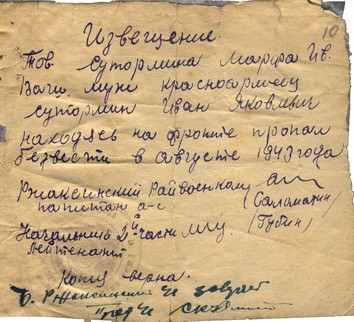 10
Извещение.
Тов. Сутормина Марфа Ив.
Ваш муж красноармеец
Сутормин Иван Яковлевич
находясь на фронте пропал
безвести в августе 1943 года
Ржаксинский Райвоенком
капитан а-с (Саломатин)
Начальник 2й части м/у. (Губин)
Лейтенант
Копия верна.